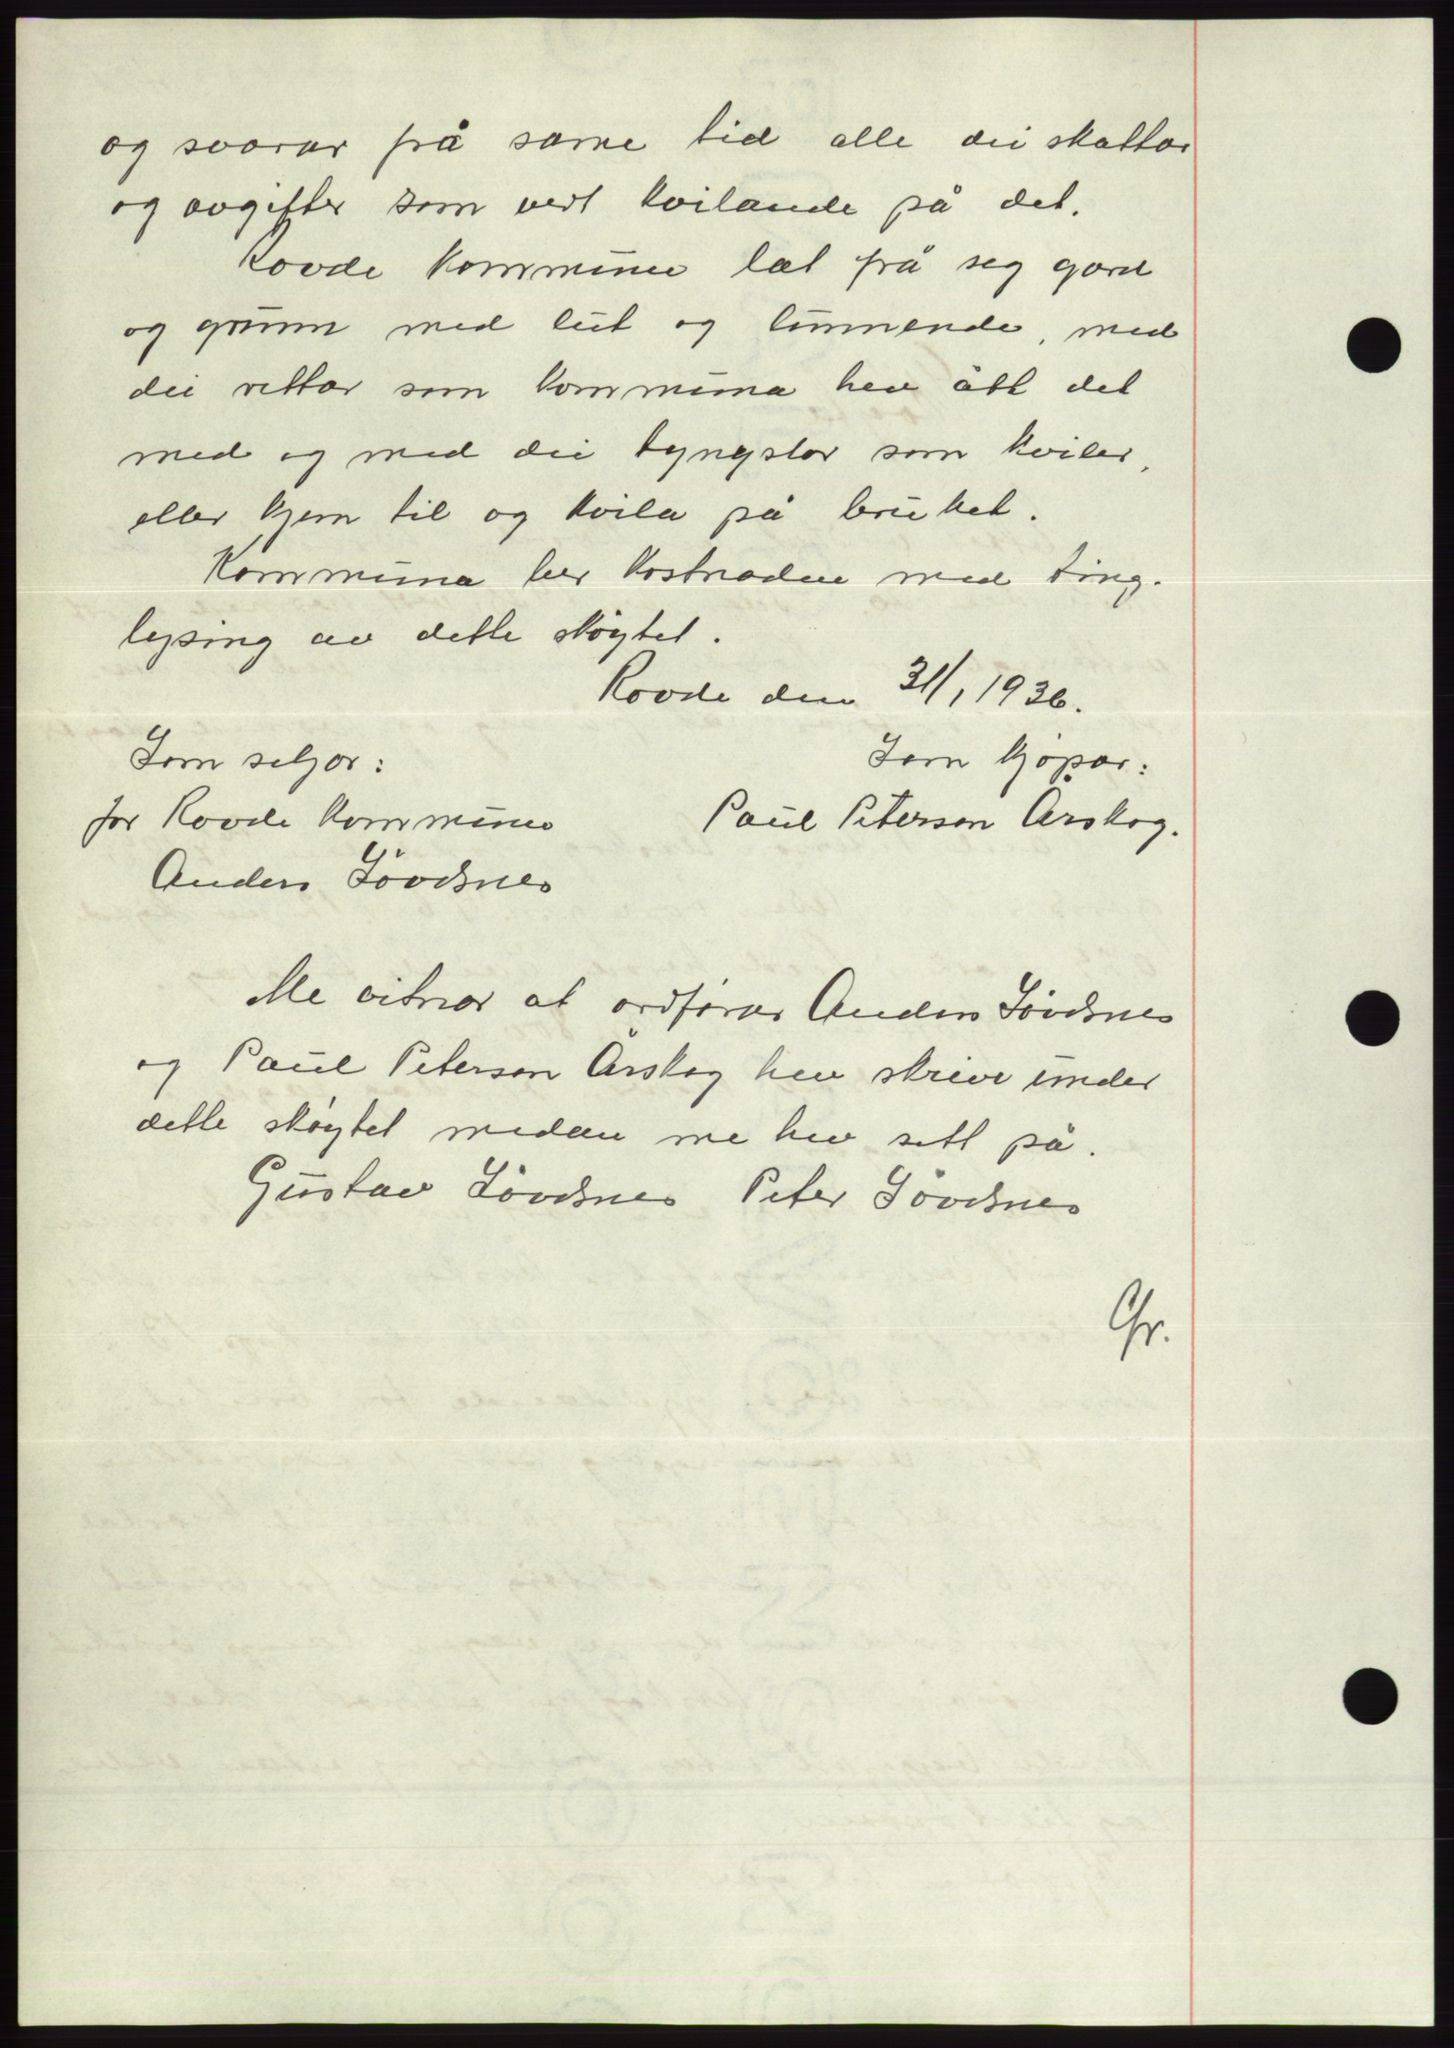 og svarar frå same tid alle dei skattar
og avgifter som vert kvilande på det.
Rovde kommune læt frå seg gard
og grunn med lut og lunnende, med
dei rettar som kommuna hev ått det
med og med dei tyngslor som kviler,
eller kjem til og kvila på bruket.
Kommuna ber kostnaden med ting-
lysing av dette skøytet.
Rovde den 31/1 1936.
Som seljar: Som kjøpar:
for Rovde kommune Paul Peterson Årskog.
Anders Søvdsnes
Me vitnar at ordførar Anders Søvdsnes
og Paul Peterson Årskog hev skrive under
dette skøytet medan me hev sett på.
Gustav Søvdsnes Peter Søvdsnes
Gr.